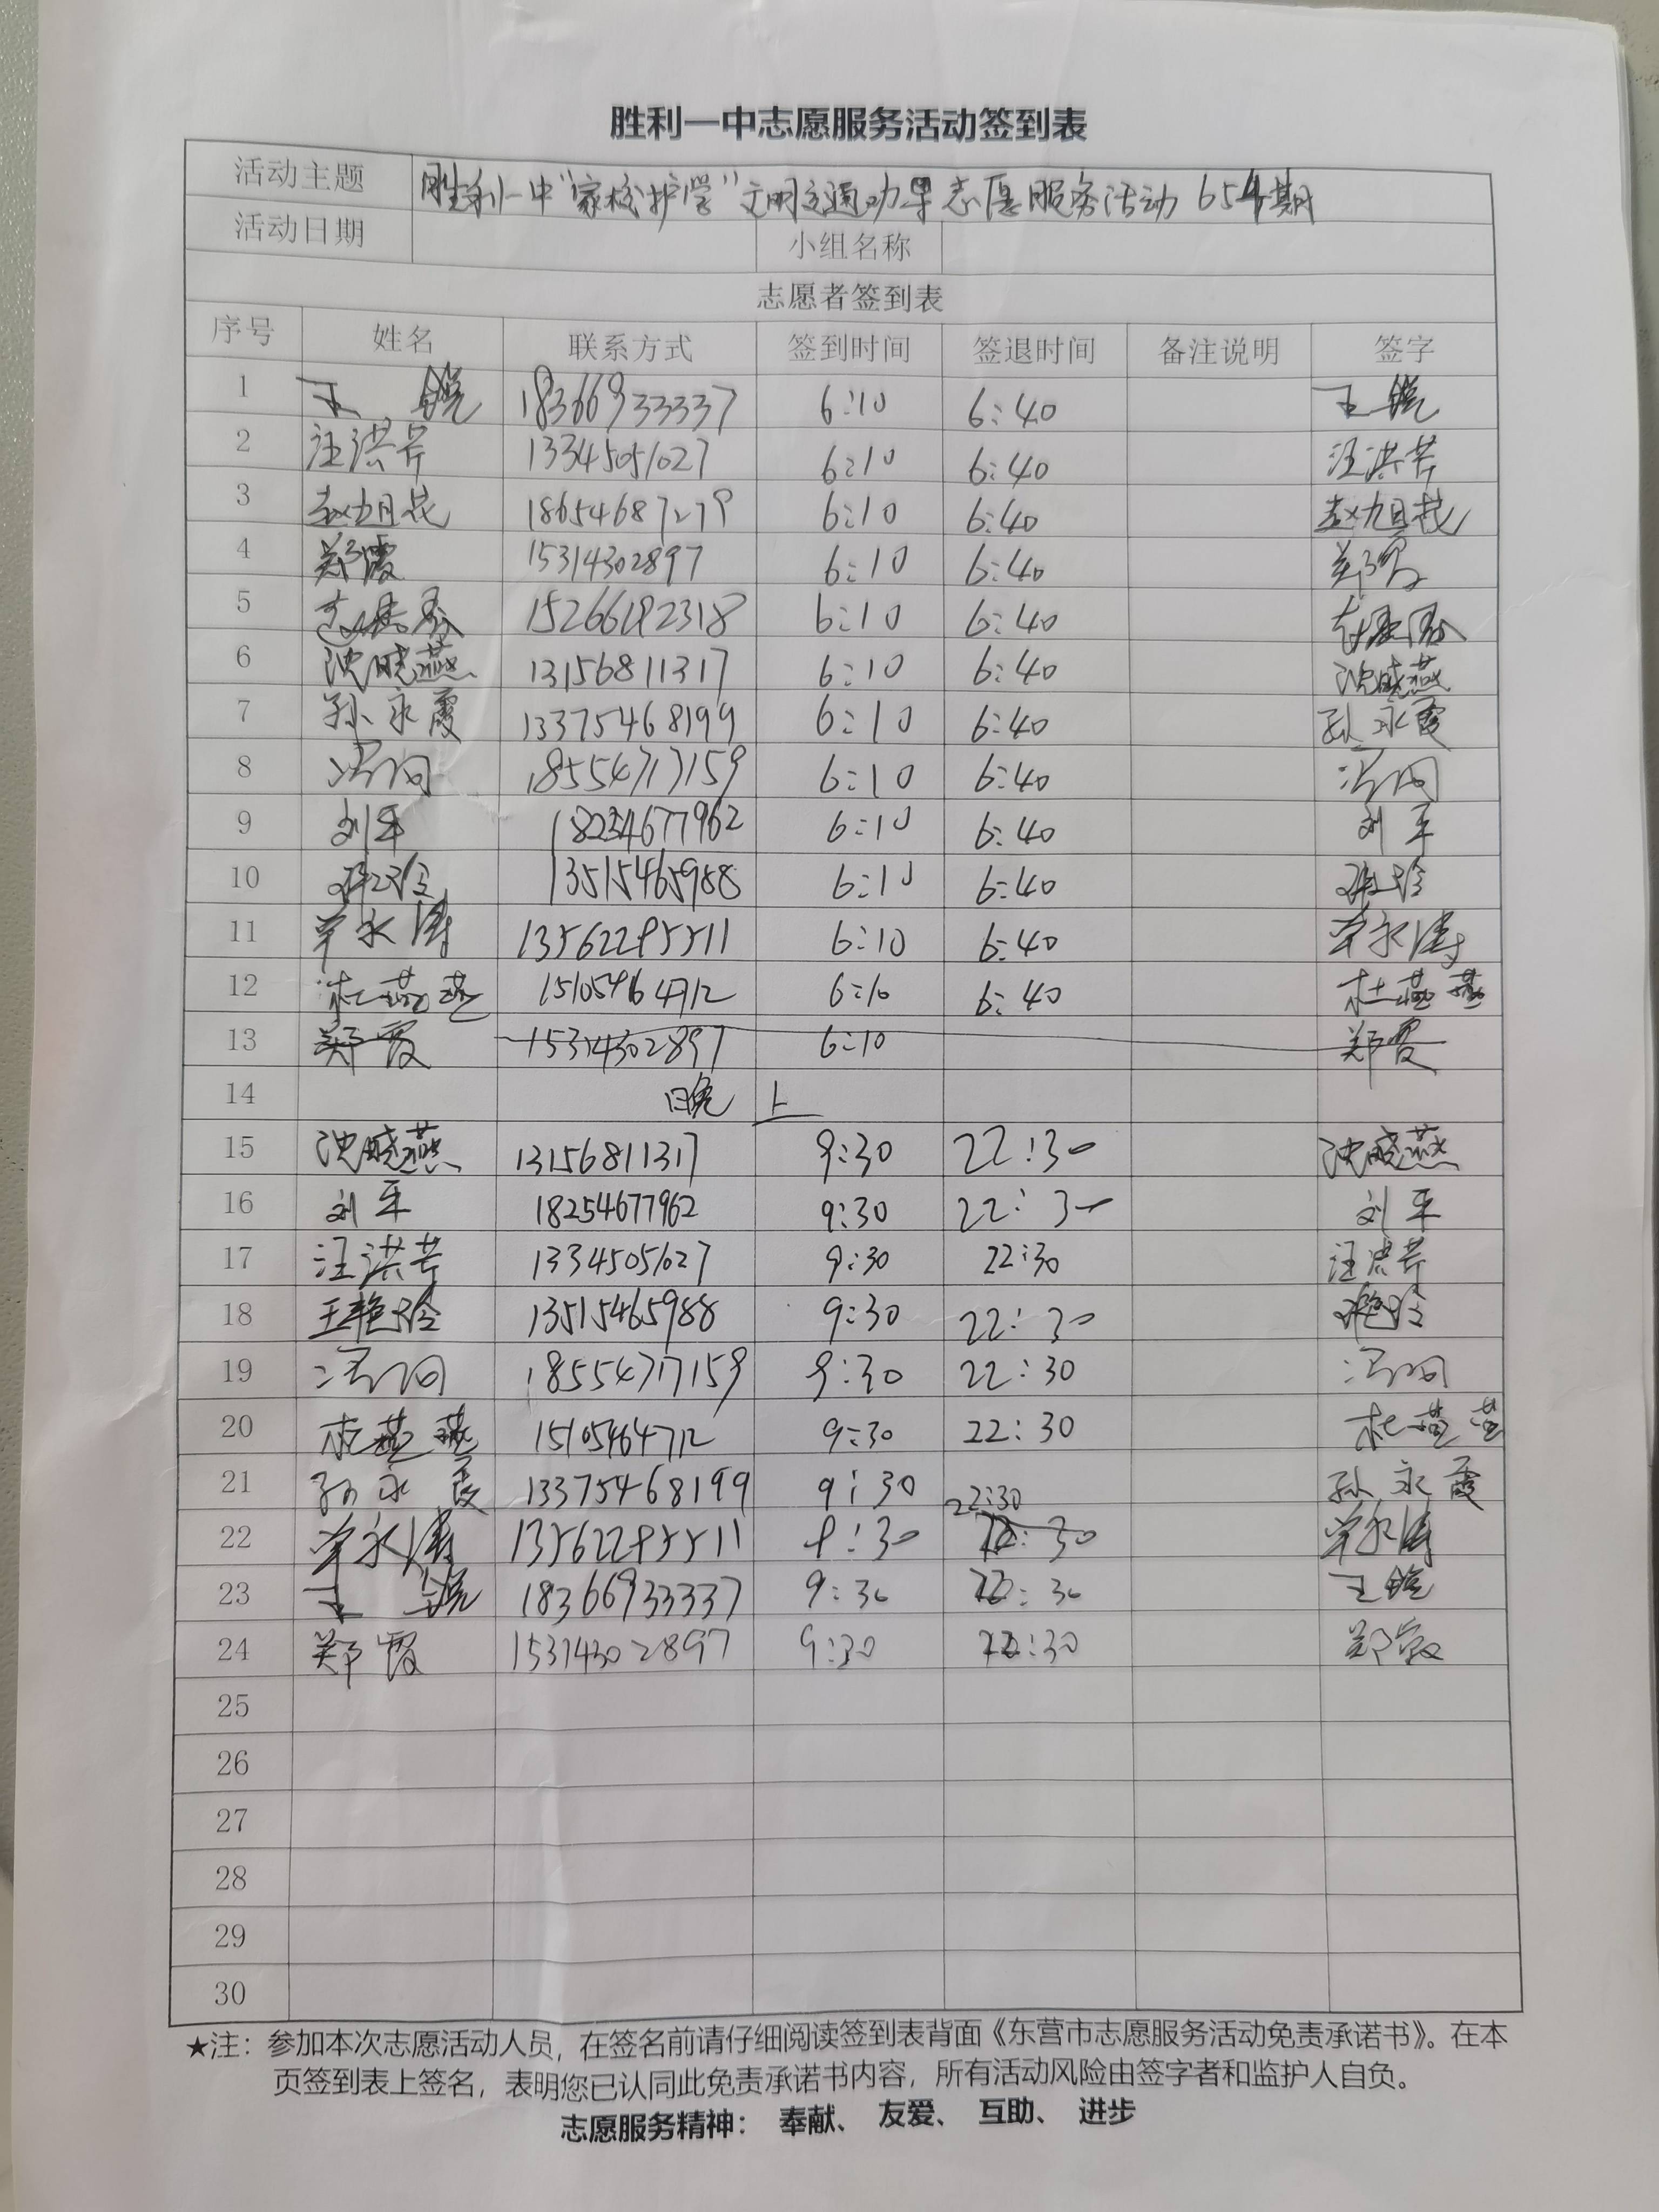 胜利一中志愿服务活动签到表
活动主题 胜利一中"家校护学"文明交通劝导志愿服务活动654期
活动日期 小组名称
志愿者签到表
序号 姓名 联系方式 签到时间 签退时间 备注说明 签字
1 王 18366933337 6:10 6:40 王
2 汪洪芹 13345051027 6:10 6:40 汪洪芹
3 赵旭 18654687279 6:10 6:40 赵旭
4 郑霞 15314302897 6:10 6:40 郑霞
5 15266192318 6:10 6:40
6 沈晓燕 13156811317 6:10 6:40 沈晓燕
7 孙永霞 13375468199 6:10 6:40 孙永霞
8 18554717159 6:10 6:40
9 刘军 18254677962 6:10 6:40 刘军
10 王艳玲 13515465988 6:10 6:40 王艳玲
11 单永涛 13562295511 6:10 6:40 单永涛
12 杜燕燕 15105464712 6:10 6:40 杜燕燕
13 郑霞 15314302897 6:10 郑霞
14 晚上
15 沈晓燕 13156811317 9:30 22:30 沈晓燕
16 刘军 18254677962 9:30 22:30 刘军
17 汪洪芹 13345051027 9:30 22:30 汪洪芹
18 王艳玲 13515465988 9:30 22:30 王艳玲
19 18554717159 9:30 22:30
20 杜燕燕 15105464712 9:30 22:30 杜燕燕
21 孙永霞 13375468199 9:30 22:30 孙永霞
22 单永涛 13562295511 9:30 22:30 单永涛
23 王 18366933337 9:30 22:30 王
24 郑霞 15314302897 9:30 22:30 郑霞
25
26
27
28
29
30
★注：参加本次志愿活动人员，在签名前请仔细阅读签到表背面《东营市志愿服务活动免责承诺书》。在本
页签到表上签名，表明您已认同此免责承诺书内容，所有活动风险由签字者和监护人自负。
志愿服务精神： 奉献、 友爱、 互助、 进步